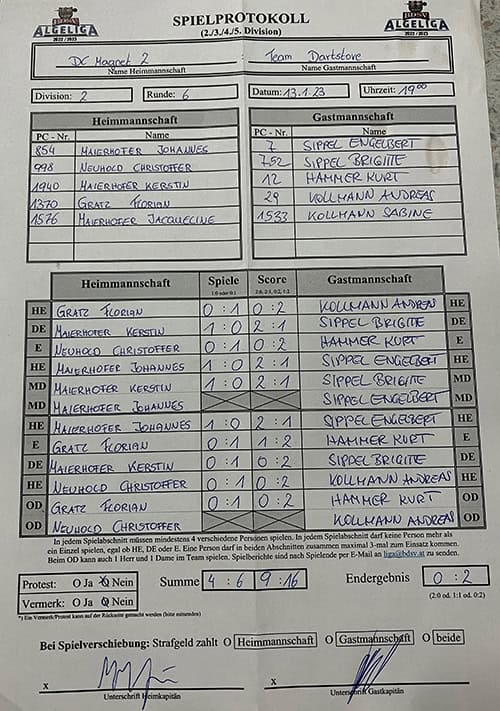 BDSV
ALGELIGA
2022 / 2023
SPIELPROTOKOLL
(2./3./4./5. Division)
BDSV
ALGELIGA
2022 / 2023
DC Magnet 2 Team Dartstore
Name Heimmannschaft Name Gastmannschaft
Division: 2 Runde: 6 Datum: 13.1.23 Uhrzeit: 19 00
Heimmannschaft Gastmannschaft
PC - Nr. Name PC - Nr. Name
854 MAIERHOFER JOHANNES 7 SIPPEL ENGELBERT
998 NEUHOLD CHRISTOFFER 752 SIPPEL BRIGITTE
1940 MAIERHOFER KERSTIN 12 HAMMER KURT
1370 GRATZ FLORIAN 29 KOLLMANN ANDREAS
1576 MAIERHOFER JACQUELINE 1533 KOLLMANN SABINE
Heimmannschaft Spiele Score Gastmannschaft
1:0 oder 0:1 2:0, 2:1, 0:2, 1:2
HE GRATZ FLORIAN 0 : 1 0 : 2 KOLLMANN ANDREAS HE
DE MAIERHOFER KERSTIN 1 : 0 2 : 1 SIPPEL BRIGITTE DE
E NEUHOLD CHRISTOFFER 0 : 1 0 : 2 HAMMER KURT E
HE MAIERHOFER JOHANNES 1 : 0 2 : 1 SIPPEL ENGELBERT HE
MD MAIERHOFER KERSTIN 1 : 0 2 : 1 SIPPEL BRIGITTE MD
MD MAIERHOFER JOHANNES SIPPEL ENGELBERT MD
HE MAIERHOFER JOHANNES 1 : 0 2 : 1 SIPPEL ENGELBERT HE
E GRATZ FLORIAN 0 : 1 1 : 2 HAMMER KURT E
DE MAIERHOFER KERSTIN 0 : 1 0 : 2 SIPPEL BRIGITTE DE
HE NEUHOLD CHRISTOFFER 0 : 1 0 : 2 KOLLMANN ANDREAS HE
OD GRATZ FLORIAN 0 : 1 0 : 2 HAMMER KURT OD
OD NEUHOLD CHRISTOFFER KOLLMANN ANDREAS OD
In jedem Spielabschnitt müssen mindestens 4 verschiedene Personen spielen. In jedem Spielabschnitt darf keine Person mehr als
ein Einzel spielen, egal ob HE, DE oder E. Eine Person darf in beiden Abschnitten zusammen maximal 3-mal zum Einsatz kommen.
Beim OD kann auch 1 Herr und 1 Dame im Team spielen. Spielberichte sind nach Spielende per E-Mail an liga@bdsv.at zu senden.
Protest: O Ja O Nein Summe 4 : 6 9 : 16 Endergebnis 0 : 2
Vermerk: O Ja O Nein (2:0 od. 1:1 od. 0:2)
*) Ein Vermerk/Protest kann auf der Rückseite gemacht werden (bitte ankreuzen)
Bei Spielverschiebung: Strafgeld zahlt O Heimmannschaft O Gastmannschaft O beide
x x
Unterschrift Heimkapitän Unterschrift Gastkapitän